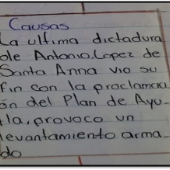 Causas
La ultima dictadura
de Antonio Lopez de
Santa Anna vio su
fin con la proclamaci
ón del Plan de Ayu-
tla, provoco un
levantamiento arma
do